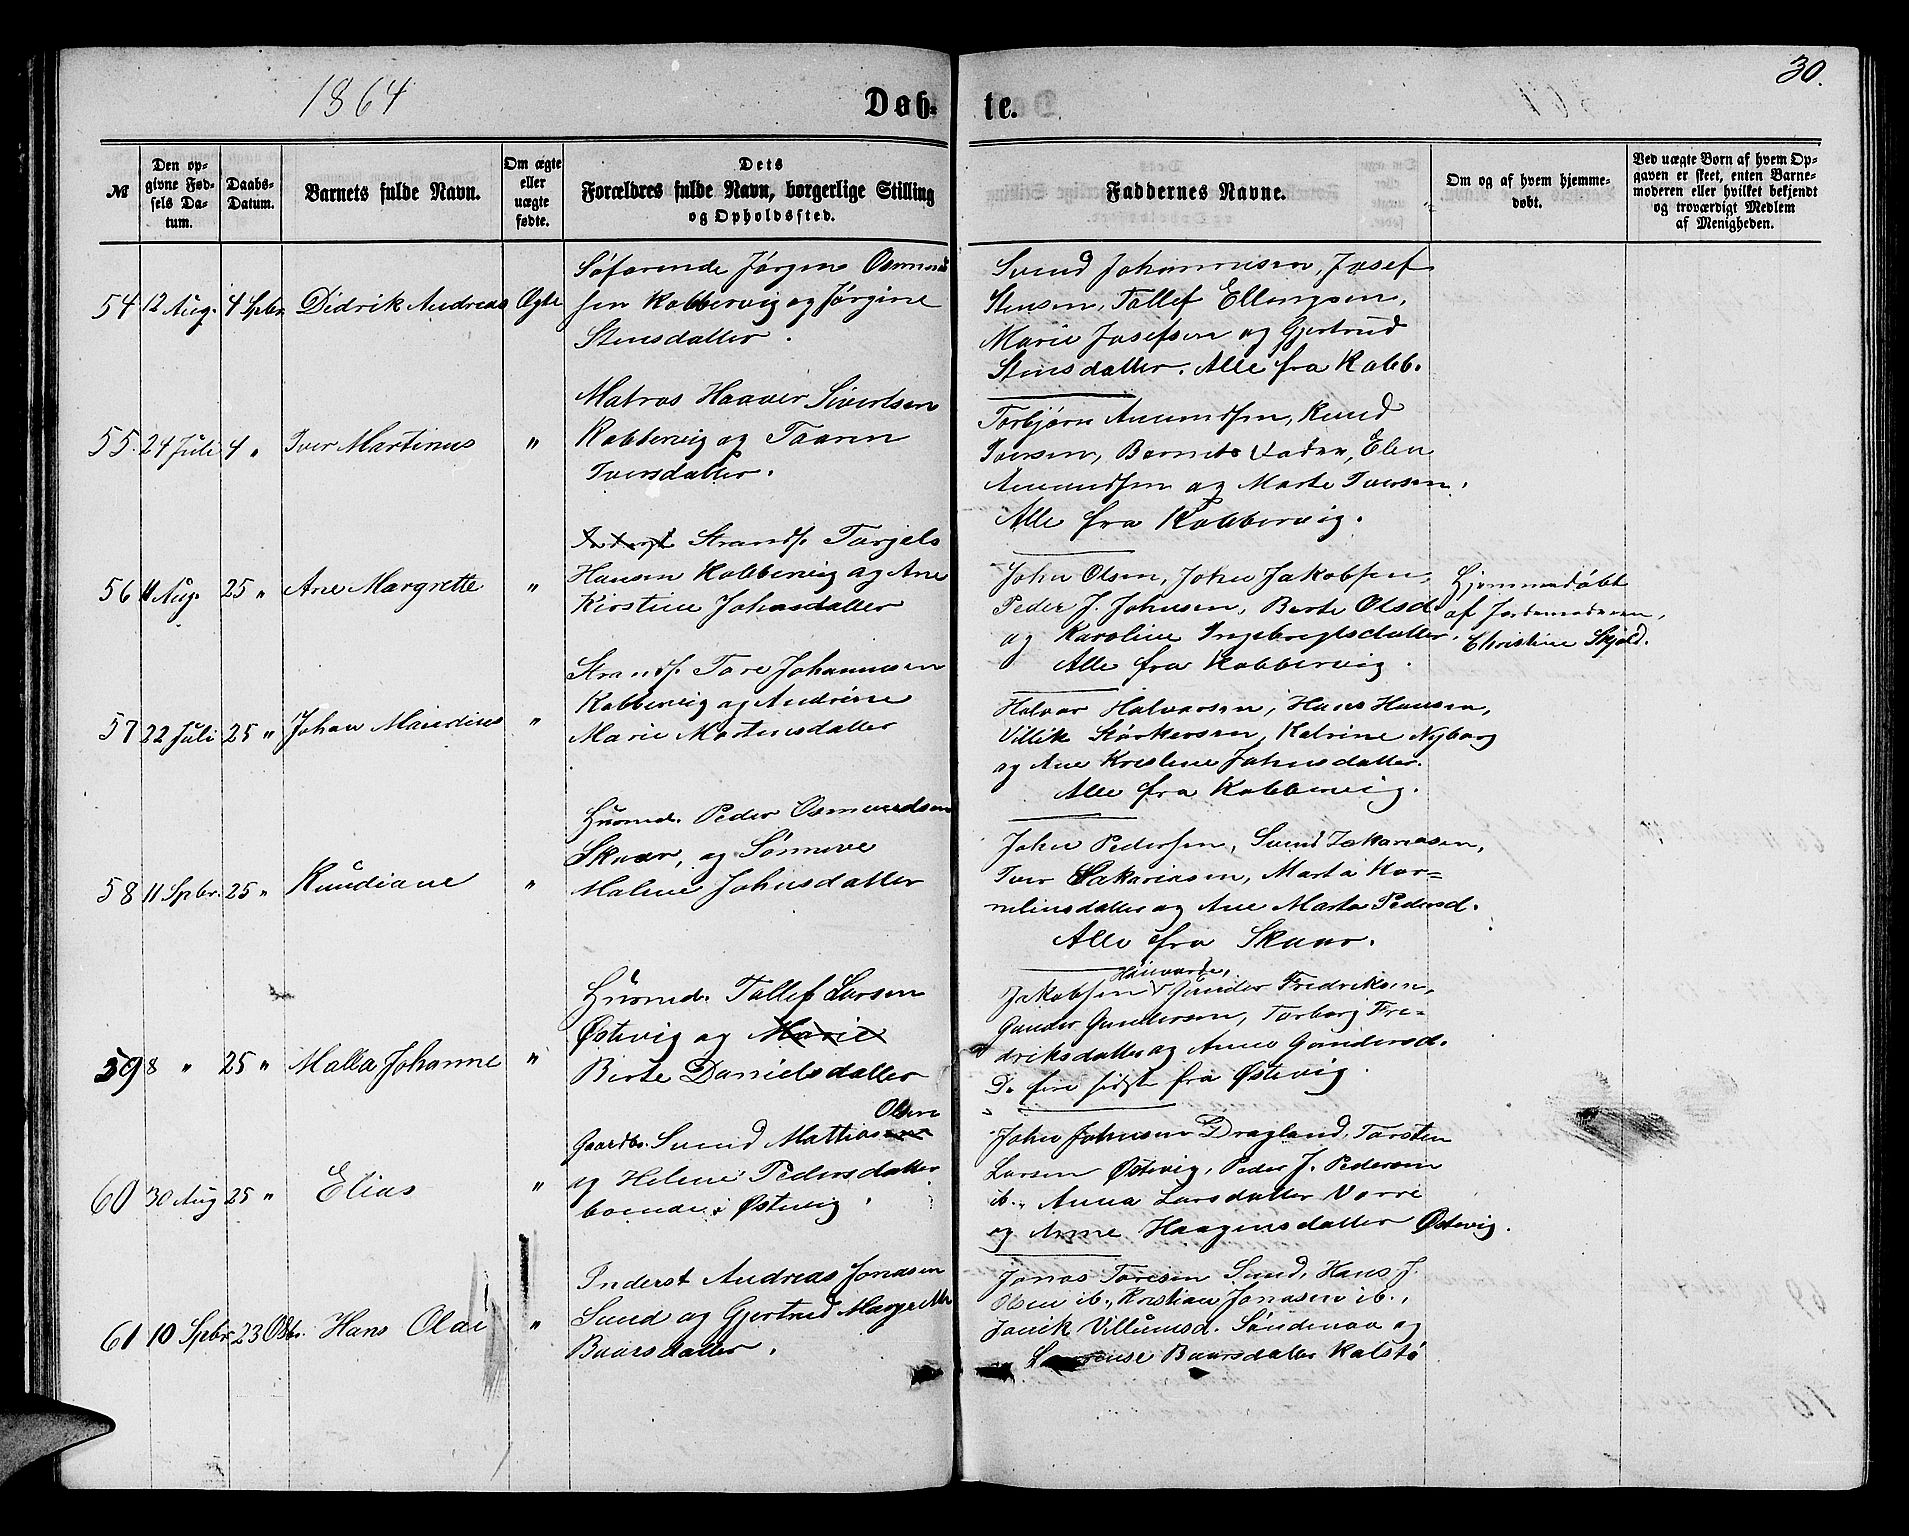 1864
Døb-
te.
30.
№
Den op-
givne Fød-
sels Da-
tum.
Daabs-
Datum.
Barnets fulde Navn.
Om ægte
eller
uægte
fødte.
Dets
Forældres fulde Navn, borgerlige Stilling
og Opholdssted.
Faddernes Navne.
Om og af hvem hjemme-
døbt.
Ved uægte Børn af hvem Op-
gaven er skeet, enten Barne-
moderen eller hvilket bekjendt
og troværdigt Medlem
af Menigheden.
54 12 Aug. 4 Spbr. Didrik Andreas Ægte
Søfarende Jørgen Osmund
sen Kobbervig og Jørgine
Stensdatter.
Svend Johannesen, Josef
Stensen, Tollef Ellingsen,
Marie Josefsen og Gjertrud
Stensdatter. Alle fra Kobb.
55. 24 Juli 4 " Iver Martinus "
Matros Haaver Sivertsen
Kobbervig og Taaren
Iversdatter.
Torbjørn Amundsen, Knud
Iversen, Barnets Fader, Elen
Amundsen og Marte Iversen.
Alle fra Kobbervig.
56 11 Aug. 25 " Ane Margrette "
Strands. Torjels
Hansen Kobbervig og Ane
Kirstine Johnsdatter
John Olsen, John Jakobsen,
Peder J. Johnsen, Berte Olsd.
og Karoline Ingebregtsdatter.
Alle fra Kobbervig.
Hjemmedøbt
af Jordemoderen,
Christine Skjold.
57 22 Juli 25 " Johan Mandius "
Strands. Tore Johannesen
Kobbervig og Andrine
Marie Martinsdatter
Halvor Halvorsen, Hans Hansen,
Villik Størkersen, Katrine Nyborg
og Ane Kristine Johnsdatter.
Alle fra Kobbervig.
58 11 Spbr. 25 " Knudiane "
Husmd. Peder Osmundsen
Skaar, og Sønneve
Malene Johnsdatter
John Pedersen, Svend Zakariasen,
Iver Sakariasen, Marta Kor-
nelinsdatter og Ane Marta Pedersd.
Alle fra Skaar.
59 8 " 25 " Malla Johanne "
Husmd. Tollef Larsen
Østevig og Marie
Berte Danielsdatter
Jakobsen Gunder Fredriksen,
Gunder Gundersen, Torborg Fre-
driksdatter og Anne Gundersd.
De fire sidste fra Østevig.
60 30 Aug 25 " Elias "
Olsen
Gaardbr. Svend Mattiasen
og Helene Pedersdatter
boende i Østevig.
John Johnsen Dragland, Torsten
Larsen Østevig, Peder J. Pedersen
ib., Anna Larsdatter Vorre
og Anne Haagensdatter Østevig.
61 10 Spbr 23 Oktbr. Hans Olai "
Inderst Andreas Jonasen
Sund og Gjertrud Margrette
Baarsdatter.
Jonas Toresen Sund, Hans J.
Olsen ib., Kristian Jonasen ib.,
Janik Villumsd. Søndenaa og
Laurense Baarsdatter Kalstø